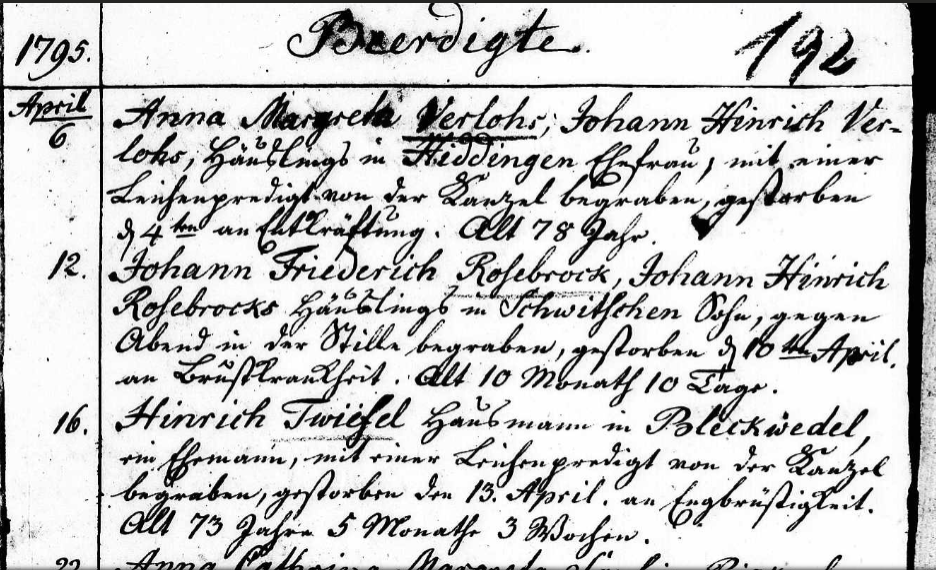 1795. Beerdigte. 192
April
6
Anna Margreta Verlohs, Johann Hinrich Ver-
lohs, Häuslings in Hiddingen Ehefrau, mit einer
Leichenpredigt von der Kanzel begraben, gestorben
d 4ten an Entkräftung. Alt 78 Jahr.
12. Johann Friederich Rosebrock, Johann Hinrich
Rosebrocks Häuslings in Schwitschen Sohn, gegen
Abend in der Stille begraben, gestorben d 10ten April.
an Brustkrankheit. Alt 10 Monath 10 Tage.
16. Hinrich Twiefel Hausmann in Bleckwedel,
ein Ehemann, mit einer Leichenpredigt von der Kanzel
begraben, gestorben den 13. April. an Engbrüstigkeit.
Alt 73 Jahre 5 Monathe 3 Wochen.
22. Anna Cathrina Margreta